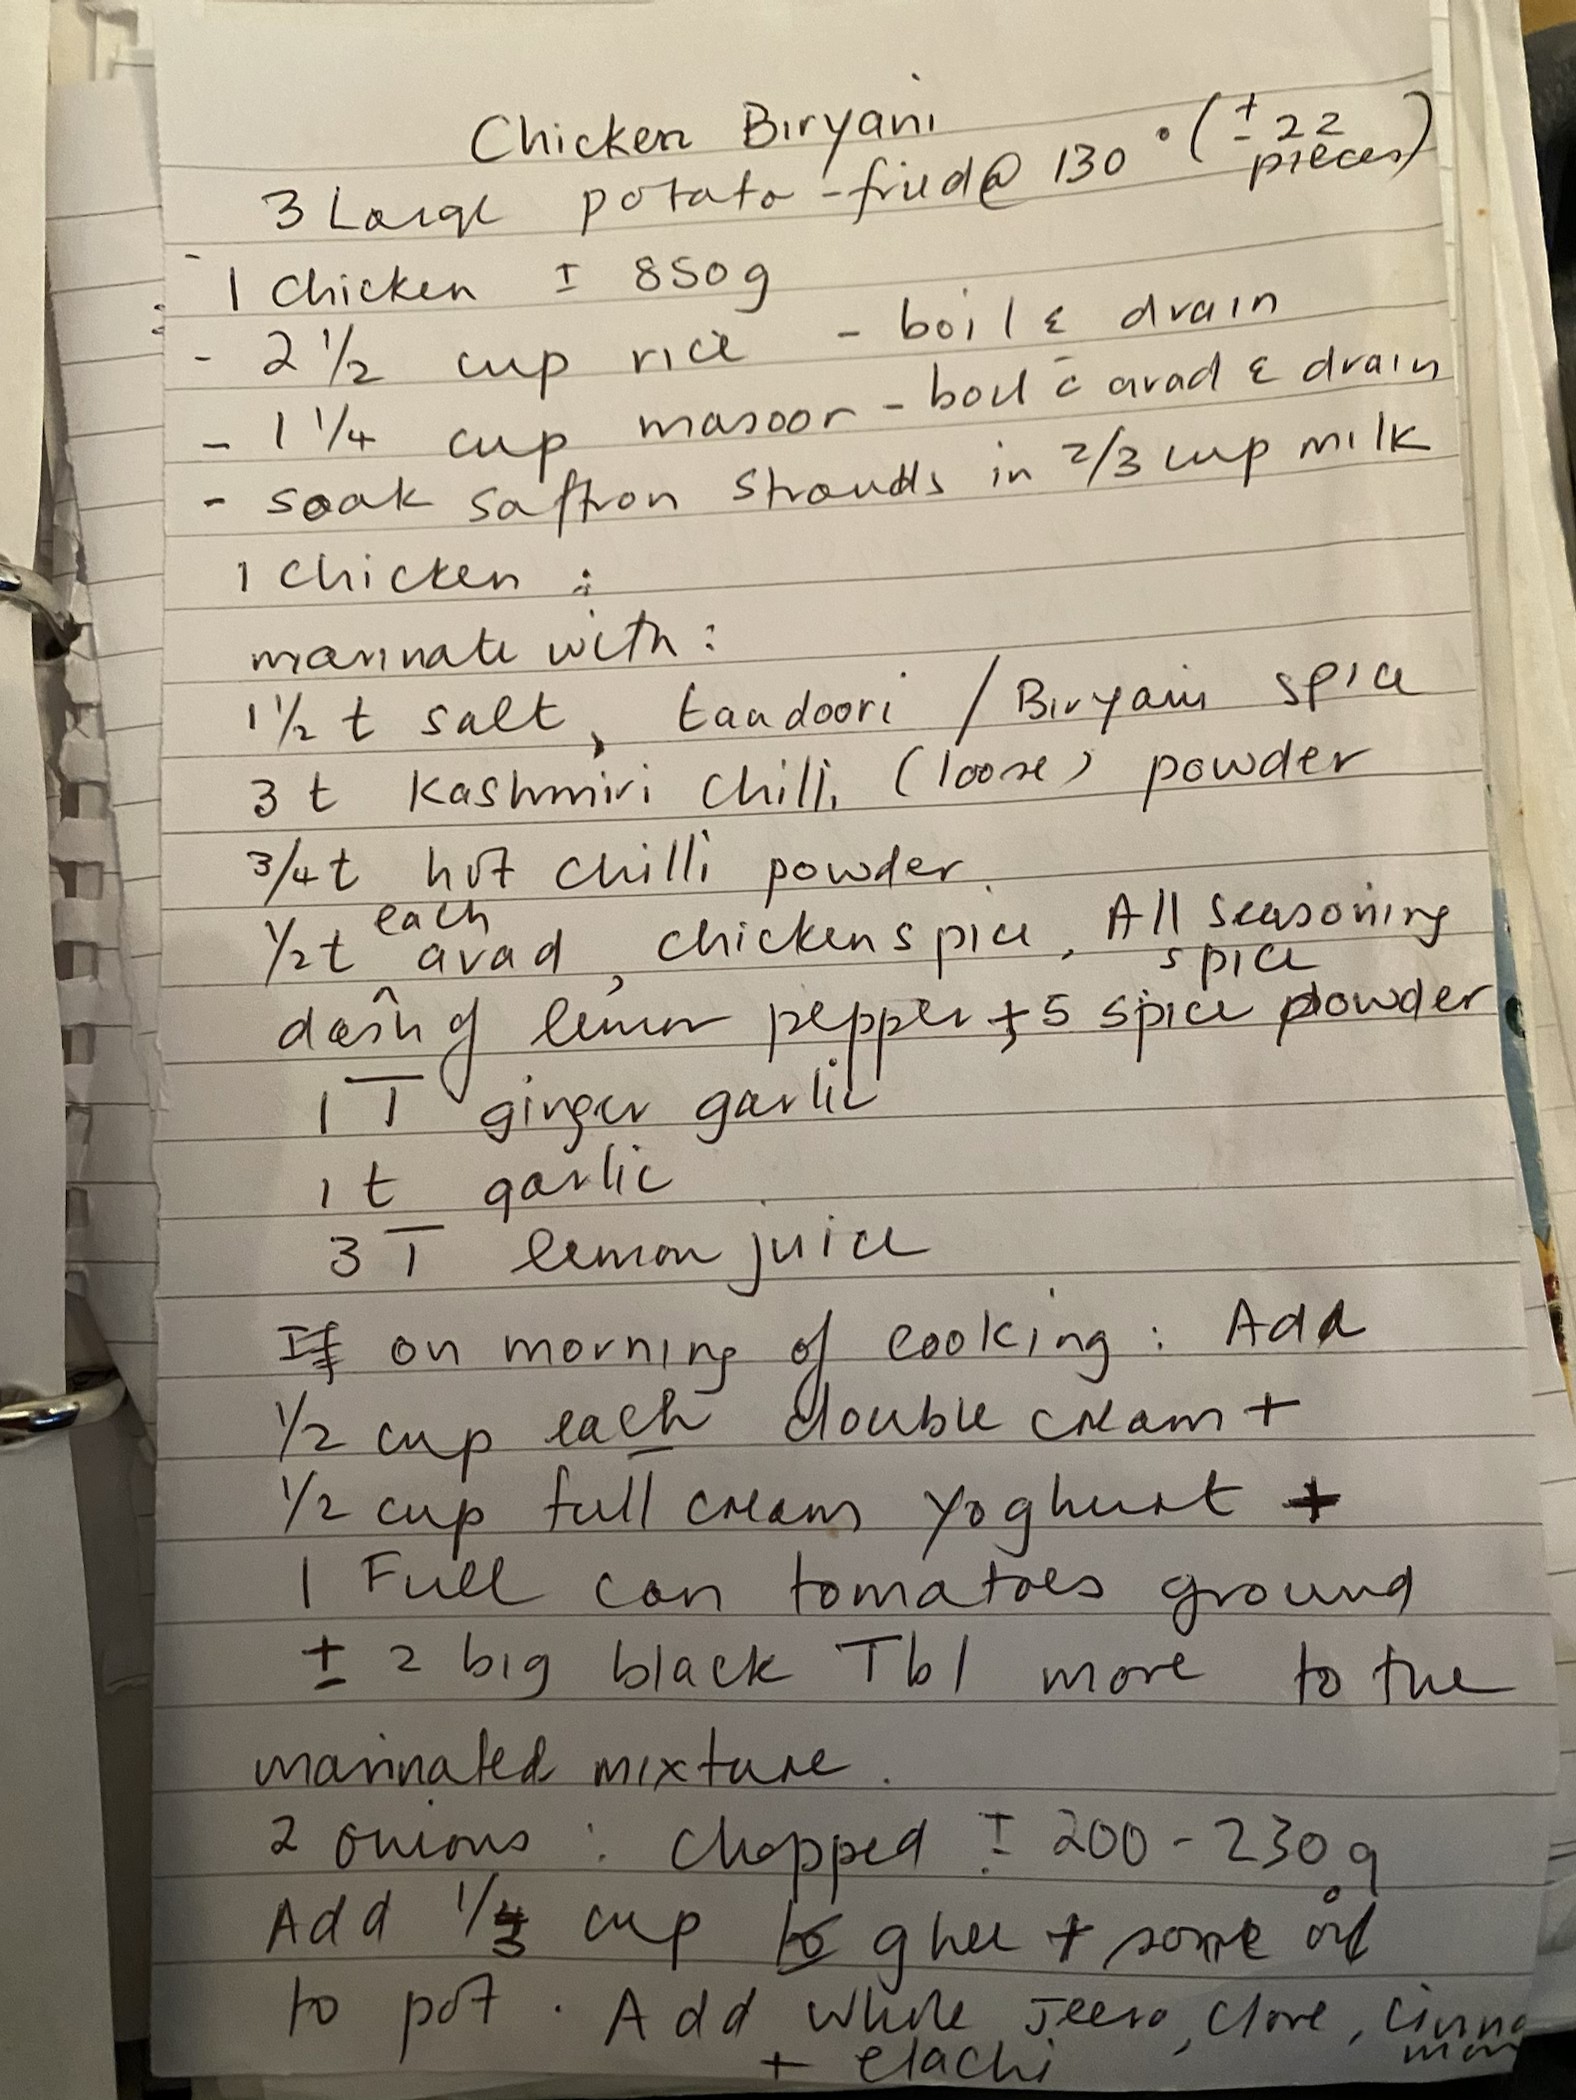 Chicken Biryani
3 Large potato - fried @ 130° (± 22 pieces)
- 1 chicken ± 850g
- 2 1/2 cup rice - boil & drain
- 1 1/4 cup masoor - boil c̄ arad & drain
- soak saffron strands in 2/3 cup milk
1 chicken :
marinate with :
1 1/2 t salt, taadoori / Biryani spice
3 t Kashmiri chilli (loose) powder
3/4 t hot chilli powder.
1/2 t each arad, chicken spice, All seasoning spice
dash of lemon pepper + 5 spice powder
1 T ginger garlic
1 t garlic
3 T lemon juice
If on morning of cooking : Add
1/2 cup each double cream +
1/2 cup full cream yoghurt +
1 Full can tomatoes ground
± 2 big black Tbl more to the
marinated mixture.
2 onions : chopped ± 200 - 230g
Add 1/3 cup ghee + some oil
to pot. Add whole Jeera, clove, cinnamon
+ elachi